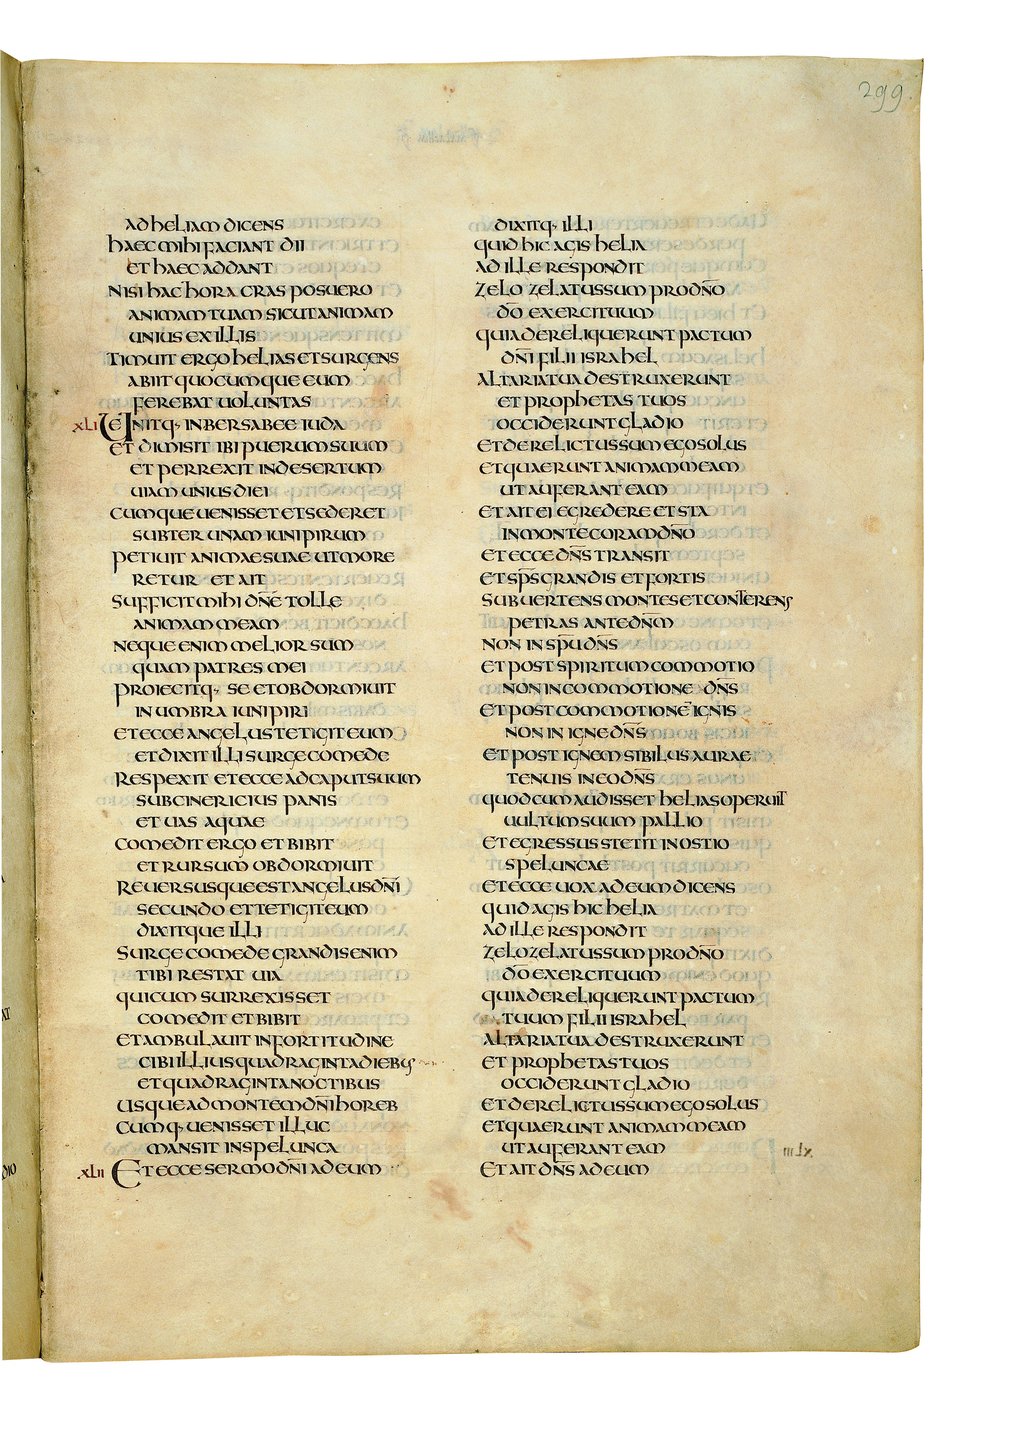 299.
AD HELIAM DICENS
HAEC MIHI FACIANT DII
ET HAEC ADDANT
NISI HAC HORA CRAS POSUERO
ANIMAM TUAM SICUT ANIMAM
UNIUS EX ILLIS
TIMUIT ERGO HELIAS ET SURGENS
ABIIT QUOCUMQUE EUM
FEREBAT UOLUNTAS
XLI UENITQ· IN BERSABEE IUDA
ET DIMISIT IBI PUERUM SUUM
ET PERREXIT IN DESERTUM
UIAM UNIUS DIEI
CUMQUE UENISSET ET SEDERET
SUBTER UNAM IUNIPIRUM
PETIUIT ANIMAE SUAE UT MORE
RETUR ET AIT
SUFFICIT MIHI DN̄E TOLLE
ANIMAM MEAM
NEQUE ENIM MELIOR SUM
QUAM PATRES MEI
PROIECITQ· SE ET OBDORMIUIT
IN UMBRA IUNIPIRI
ET ECCE ANGELUS TETIGIT EUM
ET DIXIT ILLI SURGE COMEDE
RESPEXIT ET ECCE AD CAPUT SUUM
SUBCINERICIUS PANIS
ET UAS AQUAE
COMEDIT ERGO ET BIBIT
ET RURSUM OBDORMIUIT
REUERSUSQUE EST ANGELUS DN̄I
SECUNDO ET TETIGIT EUM
DIXITQUE ILLI
SURGE COMEDE GRANDIS ENIM
TIBI RESTAT UIA
QUI CUM SURREXISSET
COMEDIT ET BIBIT
ET AMBULAUIT IN FORTITUDINE
CIBI ILLIUS QUADRAGINTA DIEBUS
ET QUADRAGINTA NOCTIBUS
USQUE AD MONTEM DN̄I HOREB
CUMQ· UENISSET ILLUC
MANSIT IN SPELUNCA
XLII ET ECCE SERMO DN̄I AD EUM
DIXITQ· ILLI
QUID HIC AGIS HELIA
AD ILLE RESPONDIT
ZELO ZELATUS SUM PRO DN̄O
DŌ EXERCITUUM
QUIA DERELIQUERUNT PACTUM
DN̄I FILII ISRAHEL
ALTARIA TUA DESTRUXERUNT
ET PROPHETAS TUOS
OCCIDERUNT GLADIO
ET DERELICTUS SUM EGO SOLUS
ET QUAERUNT ANIMAM MEAM
UT AUFERANT EAM
ET AIT EI EGREDERE ET STA
IN MONTE CORAM DN̄O
ET ECCE DN̄S TRANSIT
ET SP̄S GRANDIS ET FORTIS
SUBUERTENS MONTES ET CONTERENS
PETRAS ANTE DN̄M
NON IN SPŪ DN̄S
ET POST SPIRITUM COMMOTIO
NON IN COMMOTIONE DN̄S
ET POST COMMOTIONE IGNIS
NON IN IGNE DN̄S
ET POST IGNEM SIBILUS AURAE
TENUIS IN EO DN̄S
QUOD CUM AUDISSET HELIAS OPERUIT
UULTUM SUUM PALLIO
ET EGRESSUS STETIT IN OSTIO
SPELUNCAE
ET ECCE UOX AD EUM DICENS
QUID AGIS HIC HELIA
AD ILLE RESPONDIT
ZELO ZELATUS SUM PRO DN̄O
DŌ EXERCITUUM
QUIA DERELIQUERUNT PACTUM
TUUM FILII ISRAHEL
ALTARIA TUA DESTRUXERUNT
ET PROPHETAS TUOS
OCCIDERUNT GLADIO
ET DERELICTUS SUM EGO SOLUS
ET QUAERUNT ANIMAM MEAM
UT AUFERANT EAM
ET AIT DN̄S AD EUM